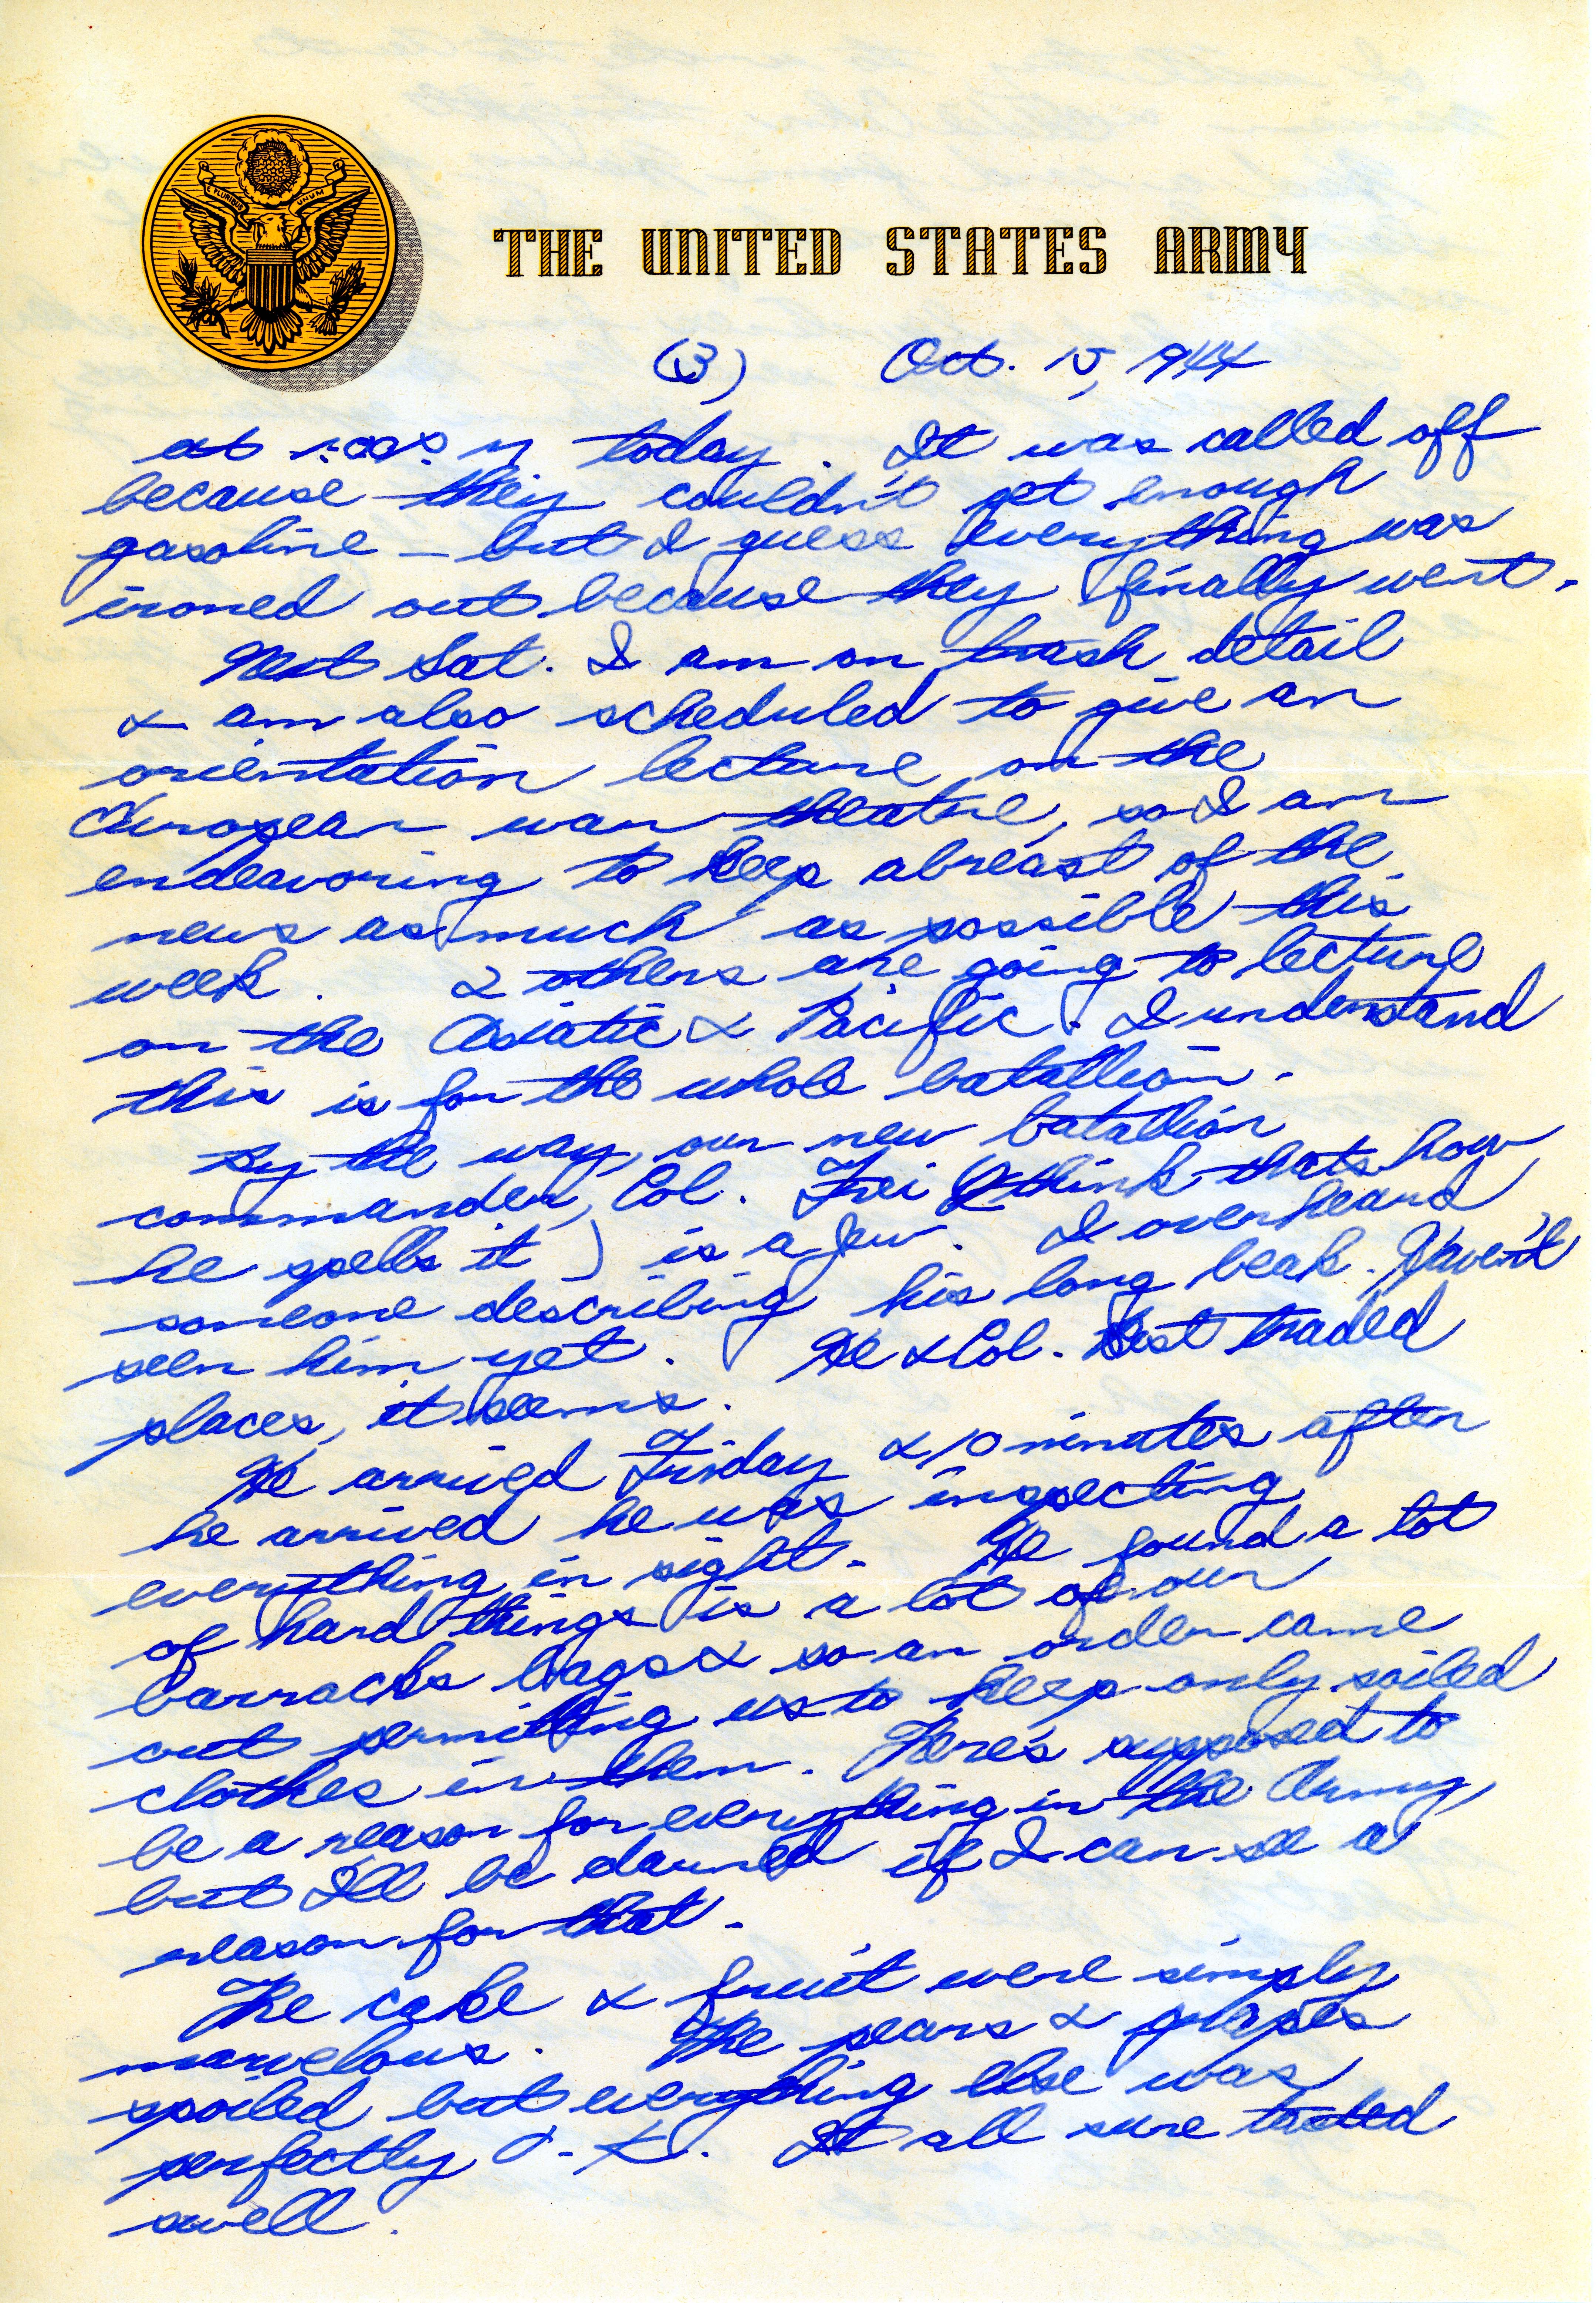 E PLURIBUS UNUM
THE UNITED STATES ARMY
(3) Oct. 15, 1944
at today. It was called off
because they couldn't get enough
gasoline — but I guess everything was
ironed out because they finally went.
Next Sat. I am on trash detail
& am also scheduled to give an
orientation lecture on the
European war theatre, so I am
endeavoring to keep abreast of the
news as much as possible this
week. 2 others are going to lecture
on the Asiatic & Pacific. I understand
this is for the whole batallion.
By the way, our new batallion
commander, Col. Frei (I think thats how
he spells it) is a Jew. I overheard
someone describing his long beak. Haven't
seen him yet. He & Col. Best traded
places, it seems.
He arrived Friday & 10 minutes after
he arrived he was inspecting
everything in sight. He found a lot
of hard things in a lot of our
barracks bags & so an order came
out permitting us to keep only soiled
clothes in them. There's supposed to
be a reason for everything in the Army,
but I'll be darned if I can see a
reason for that.
The cake & fruit were simply
marvelous. The pears & grapes
spoiled but everything else was
perfectly O.K. It all sure tasted
swell.